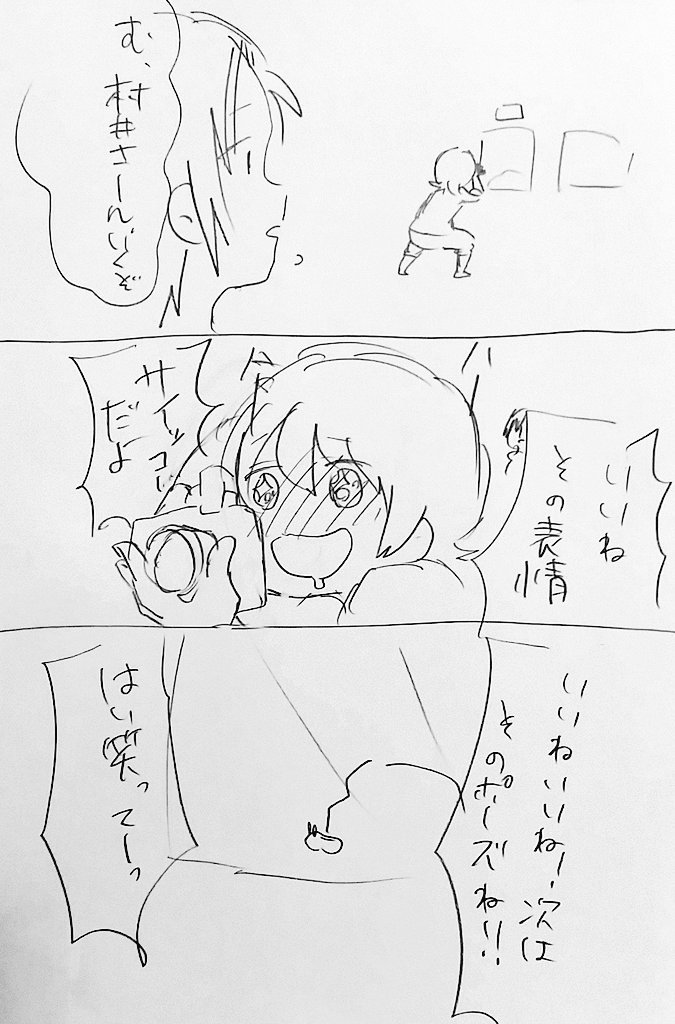 む、
村井さーんいくぞ
ハ
ハ
いいね
その表情
サイッコー
だよ
いいねいいねー!次は
そのポーズね!!
はい笑ってーっ